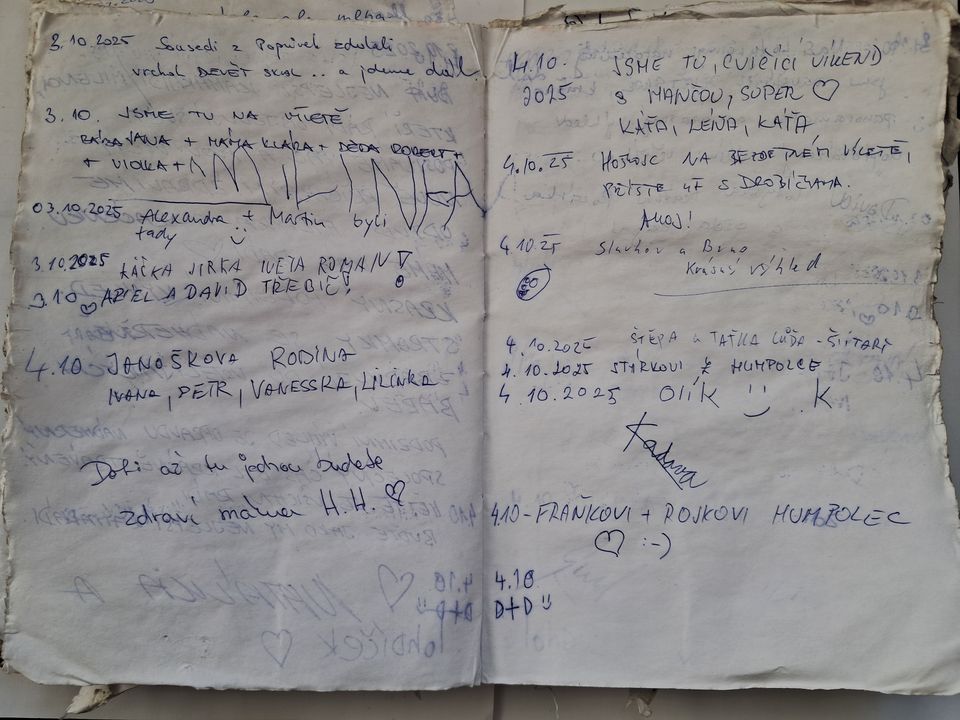 3.10.2025 Sousedi z Popůvek zdolali
vrchol DEVĚT SKAL .. a jdeme dál
3.10. JSME TU NA VÝLETĚ
BÁBA JANA + MÁMA KLÁRA + DĚDA ROBERT +
+ VIOLKA + MILINKA
03.10.2025 Alexandra + Martin byli
tady
3.10.2025 KÁČKA JIRKA IVETA ROMAN
3.10 ARIEL A DAVID TŘEBÍČ!
4.10 JANOŠKOVA RODINA
IVANA, PETR, VANESSKA, LILINKA
Doki až tu jednou budete
zdraví máma H.H.
4.10. JSME TU, CVIČÍCÍ VÍKEND
2025 S MANČOU, SUPER
KÁŤA, LÉŇA, KÁŤA
4.10.25 NA BEZDĚTNÉM VÝLETĚ,
PŘÍŠTĚ UŽ S DROBIČKAMA.
AHOJ!
4.10.25 Slavkov u Brna
Krásný výhled
4.10.2025 ŠTĚPA a TAŤKA LŮĎA - ŠTÍTARY
4.10.2025 STÝRKOVI Z HUMPOLCE
4.10.2025 OLÍK K
4.10 - FRAŇKOVI + ROJKOVI HUMPOLEC
:-)
4.10
D+D